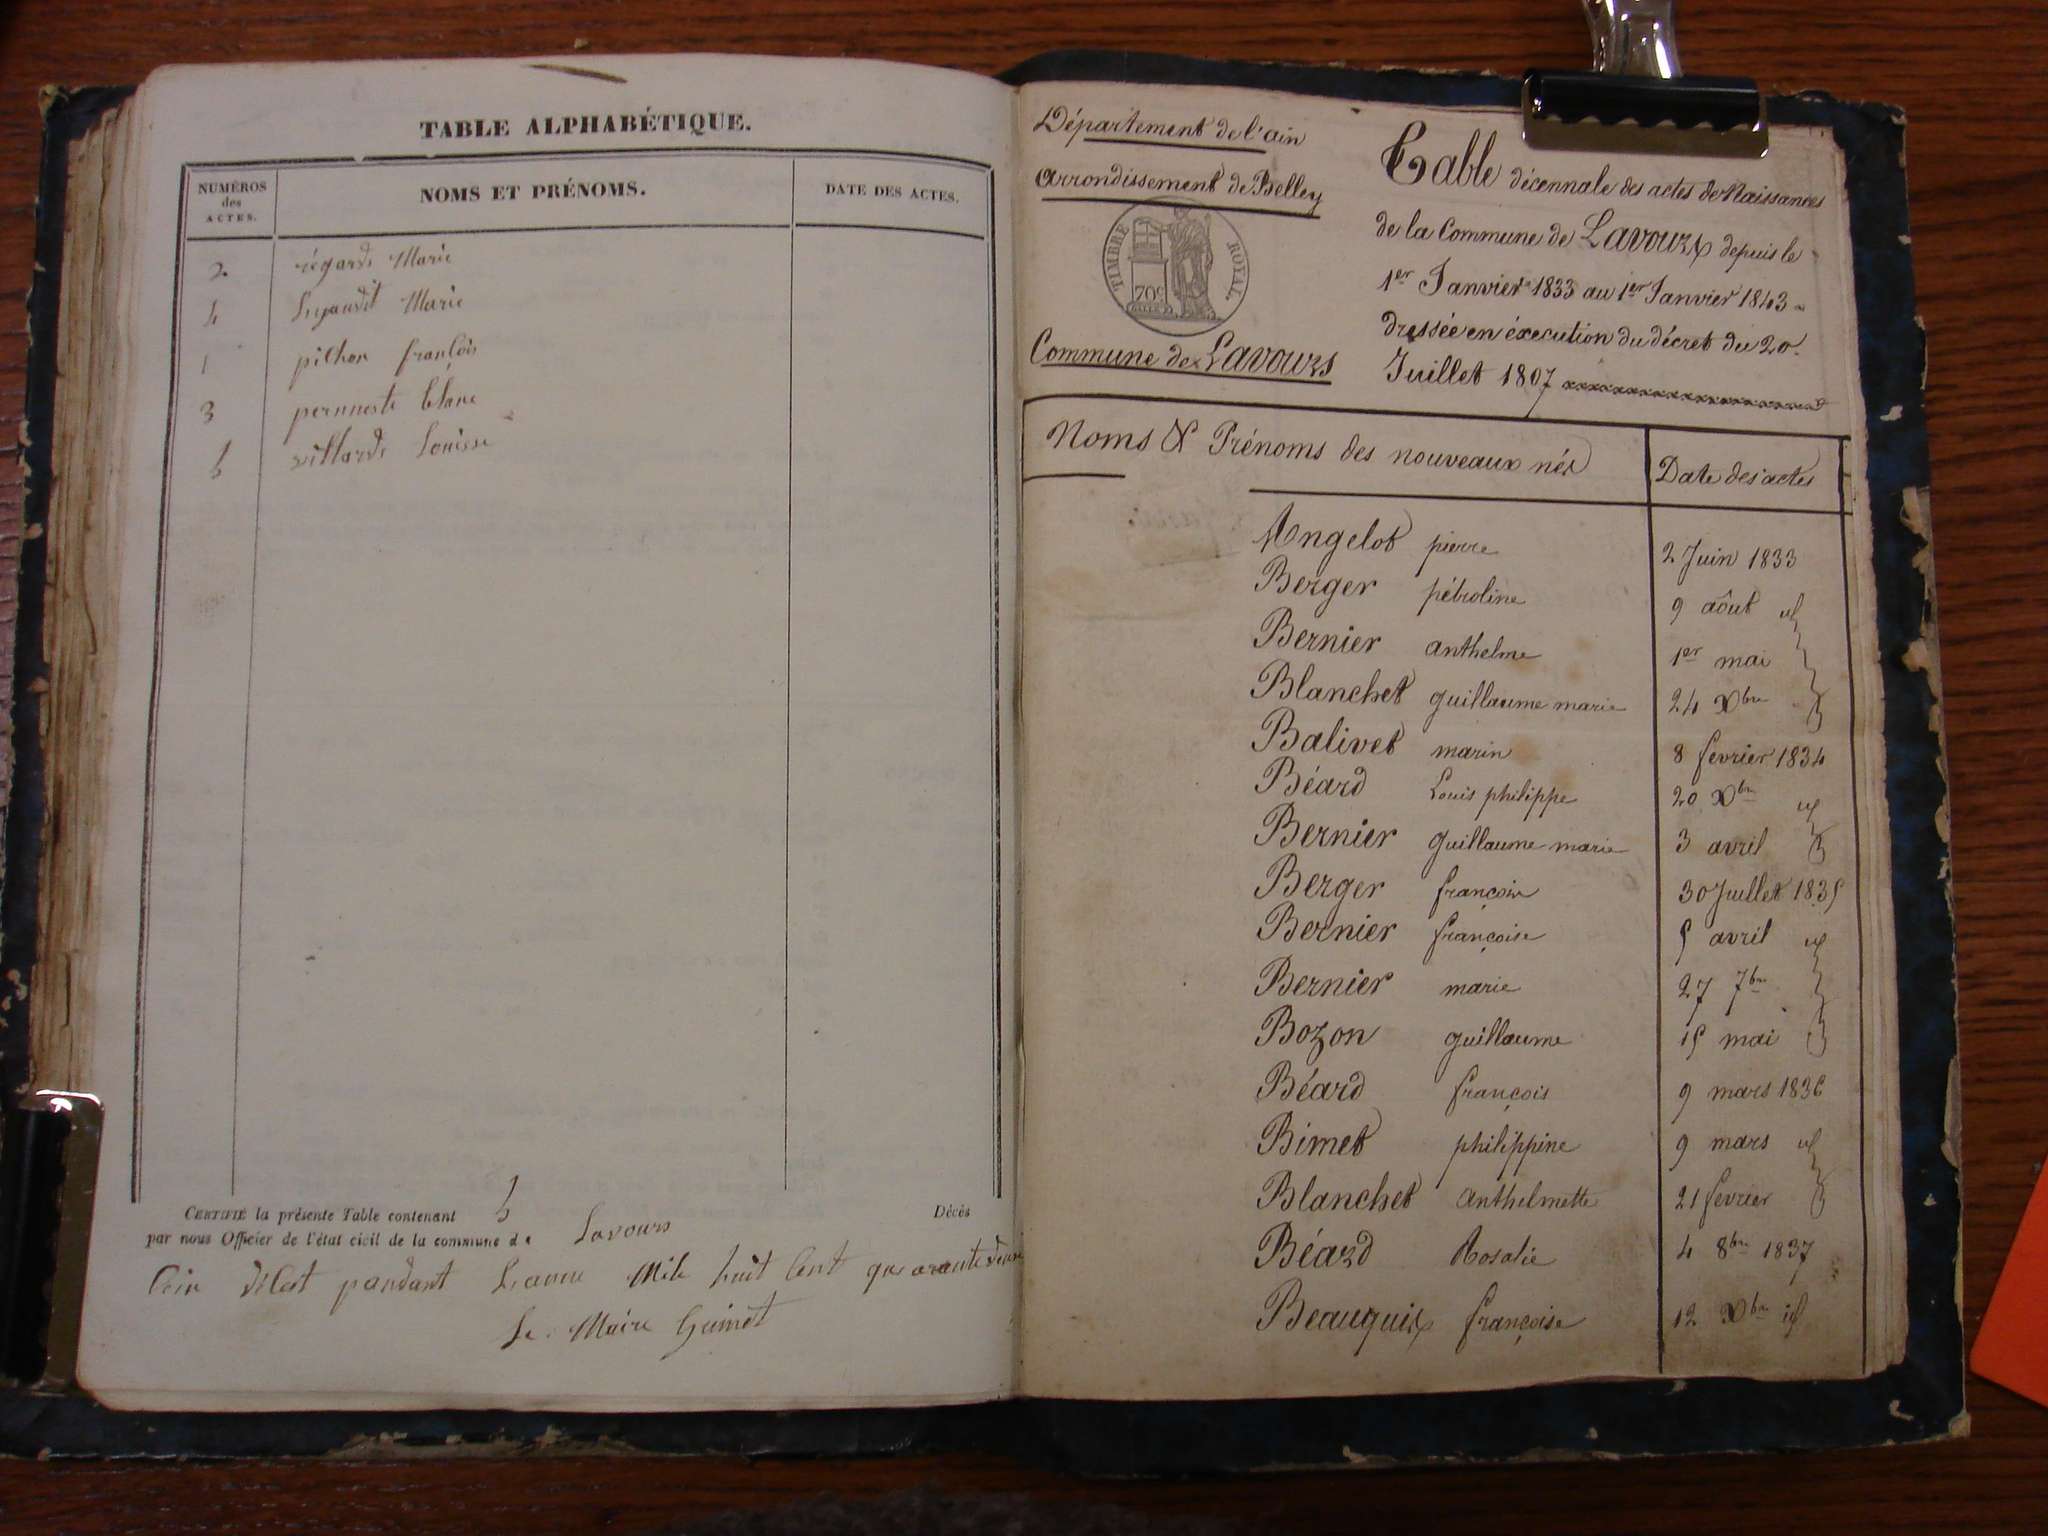 TABLE ALPHABÉTIQUE.
NUMÉROS des ACTES. NOMS ET PRÉNOMS. DATE DES ACTES.
2 régards Marie
4 Marie
1 pithon françois
3 perunneste blanc
5 villards Louisse
CERTIFIÉ la présente Table contenant 5 Décès
par nous Officier de l'état civil de la commune de Lavours
pandant Lanne Mile huit Cent quarante deux
Le Maire Guimet
Département de l'ain
Arrondissement de Belley
TIMBRE ROYAL
70c
Commune de Lavours
Table décennale des actes de Naissances
de la Commune de Lavours depuis le
1er Janvier 1833 au 1er Janvier 1843
dressée en éxecution du décret du 20
Juillet 1807
Noms & Prénoms des nouveaux nés Date des actes
Angelot pierre 2 Juin 1833
Berger pétroline 9 aôut id
Bernier anthelme 1er mai
Blanchet guillaume marie 24 Xbre
Balivet marin 8 fevrier 1834
Béard Louis philippe 20 Xbre id
Bernier guillaume marie 3 avril
Berger françois 30 Juillet 1835
Bernier françoise 5 avril id
Bernier marie 27 7bre
Bozon guillaume 15 mai
Béard françois 9 mars 1836
Bimet philippine 9 mars id
Blanchet anthelmette 21 fevrier
Béard Rosalie 4 8bre 1837
Beauquis françoise 12 Xbre id